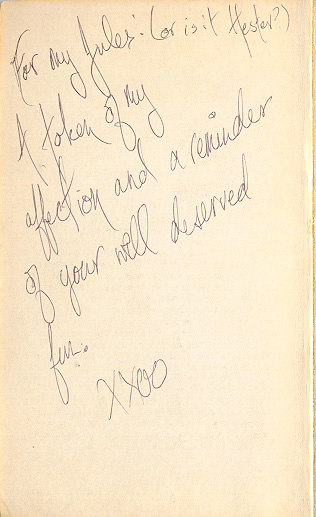 For my Jules: (or is it Hester?)
A token of my
affection and a reminder
of your well deserved
fun.
XXOO